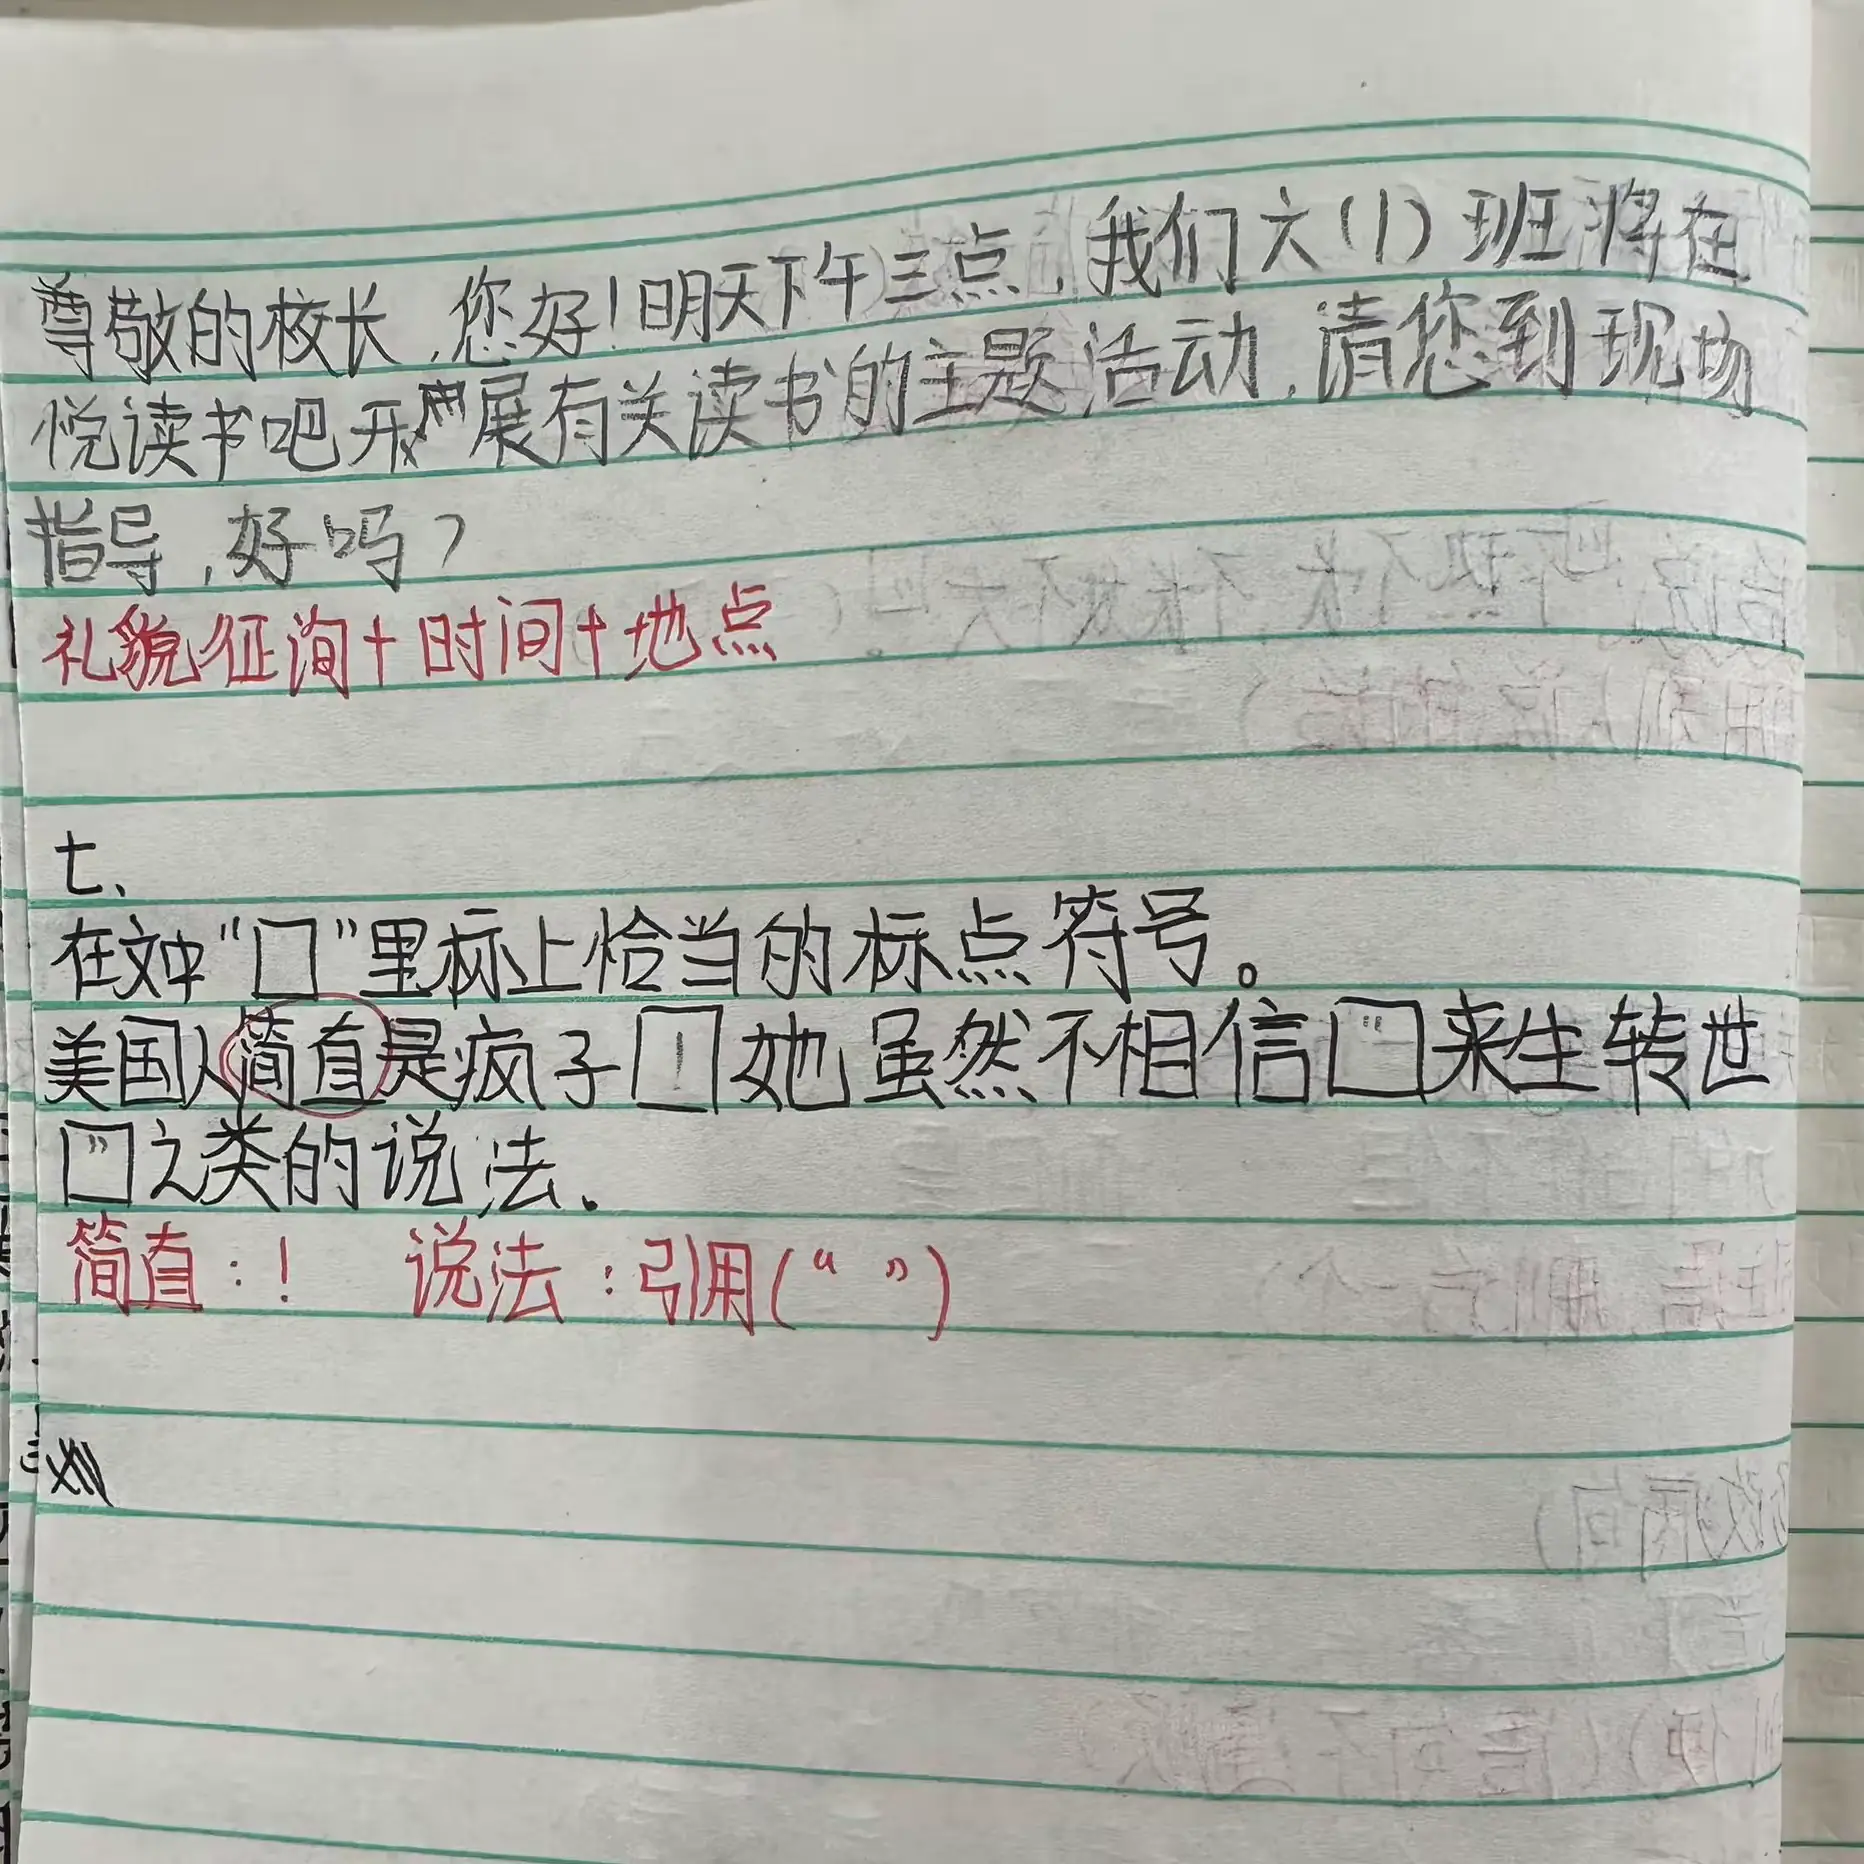 尊敬的校长,您好!明天下午三点,我们六(1)班将在
悦读书吧开展有关读书的主题活动,请您到现场
指导,好吗?
礼貌征询+时间+地点
七、
在文中“囗”里标上恰当的标点符号。
美国人简直是疯子!她虽然不相信“来生转世
”之类的说法.
简直:! 说法:引用(“ ”)